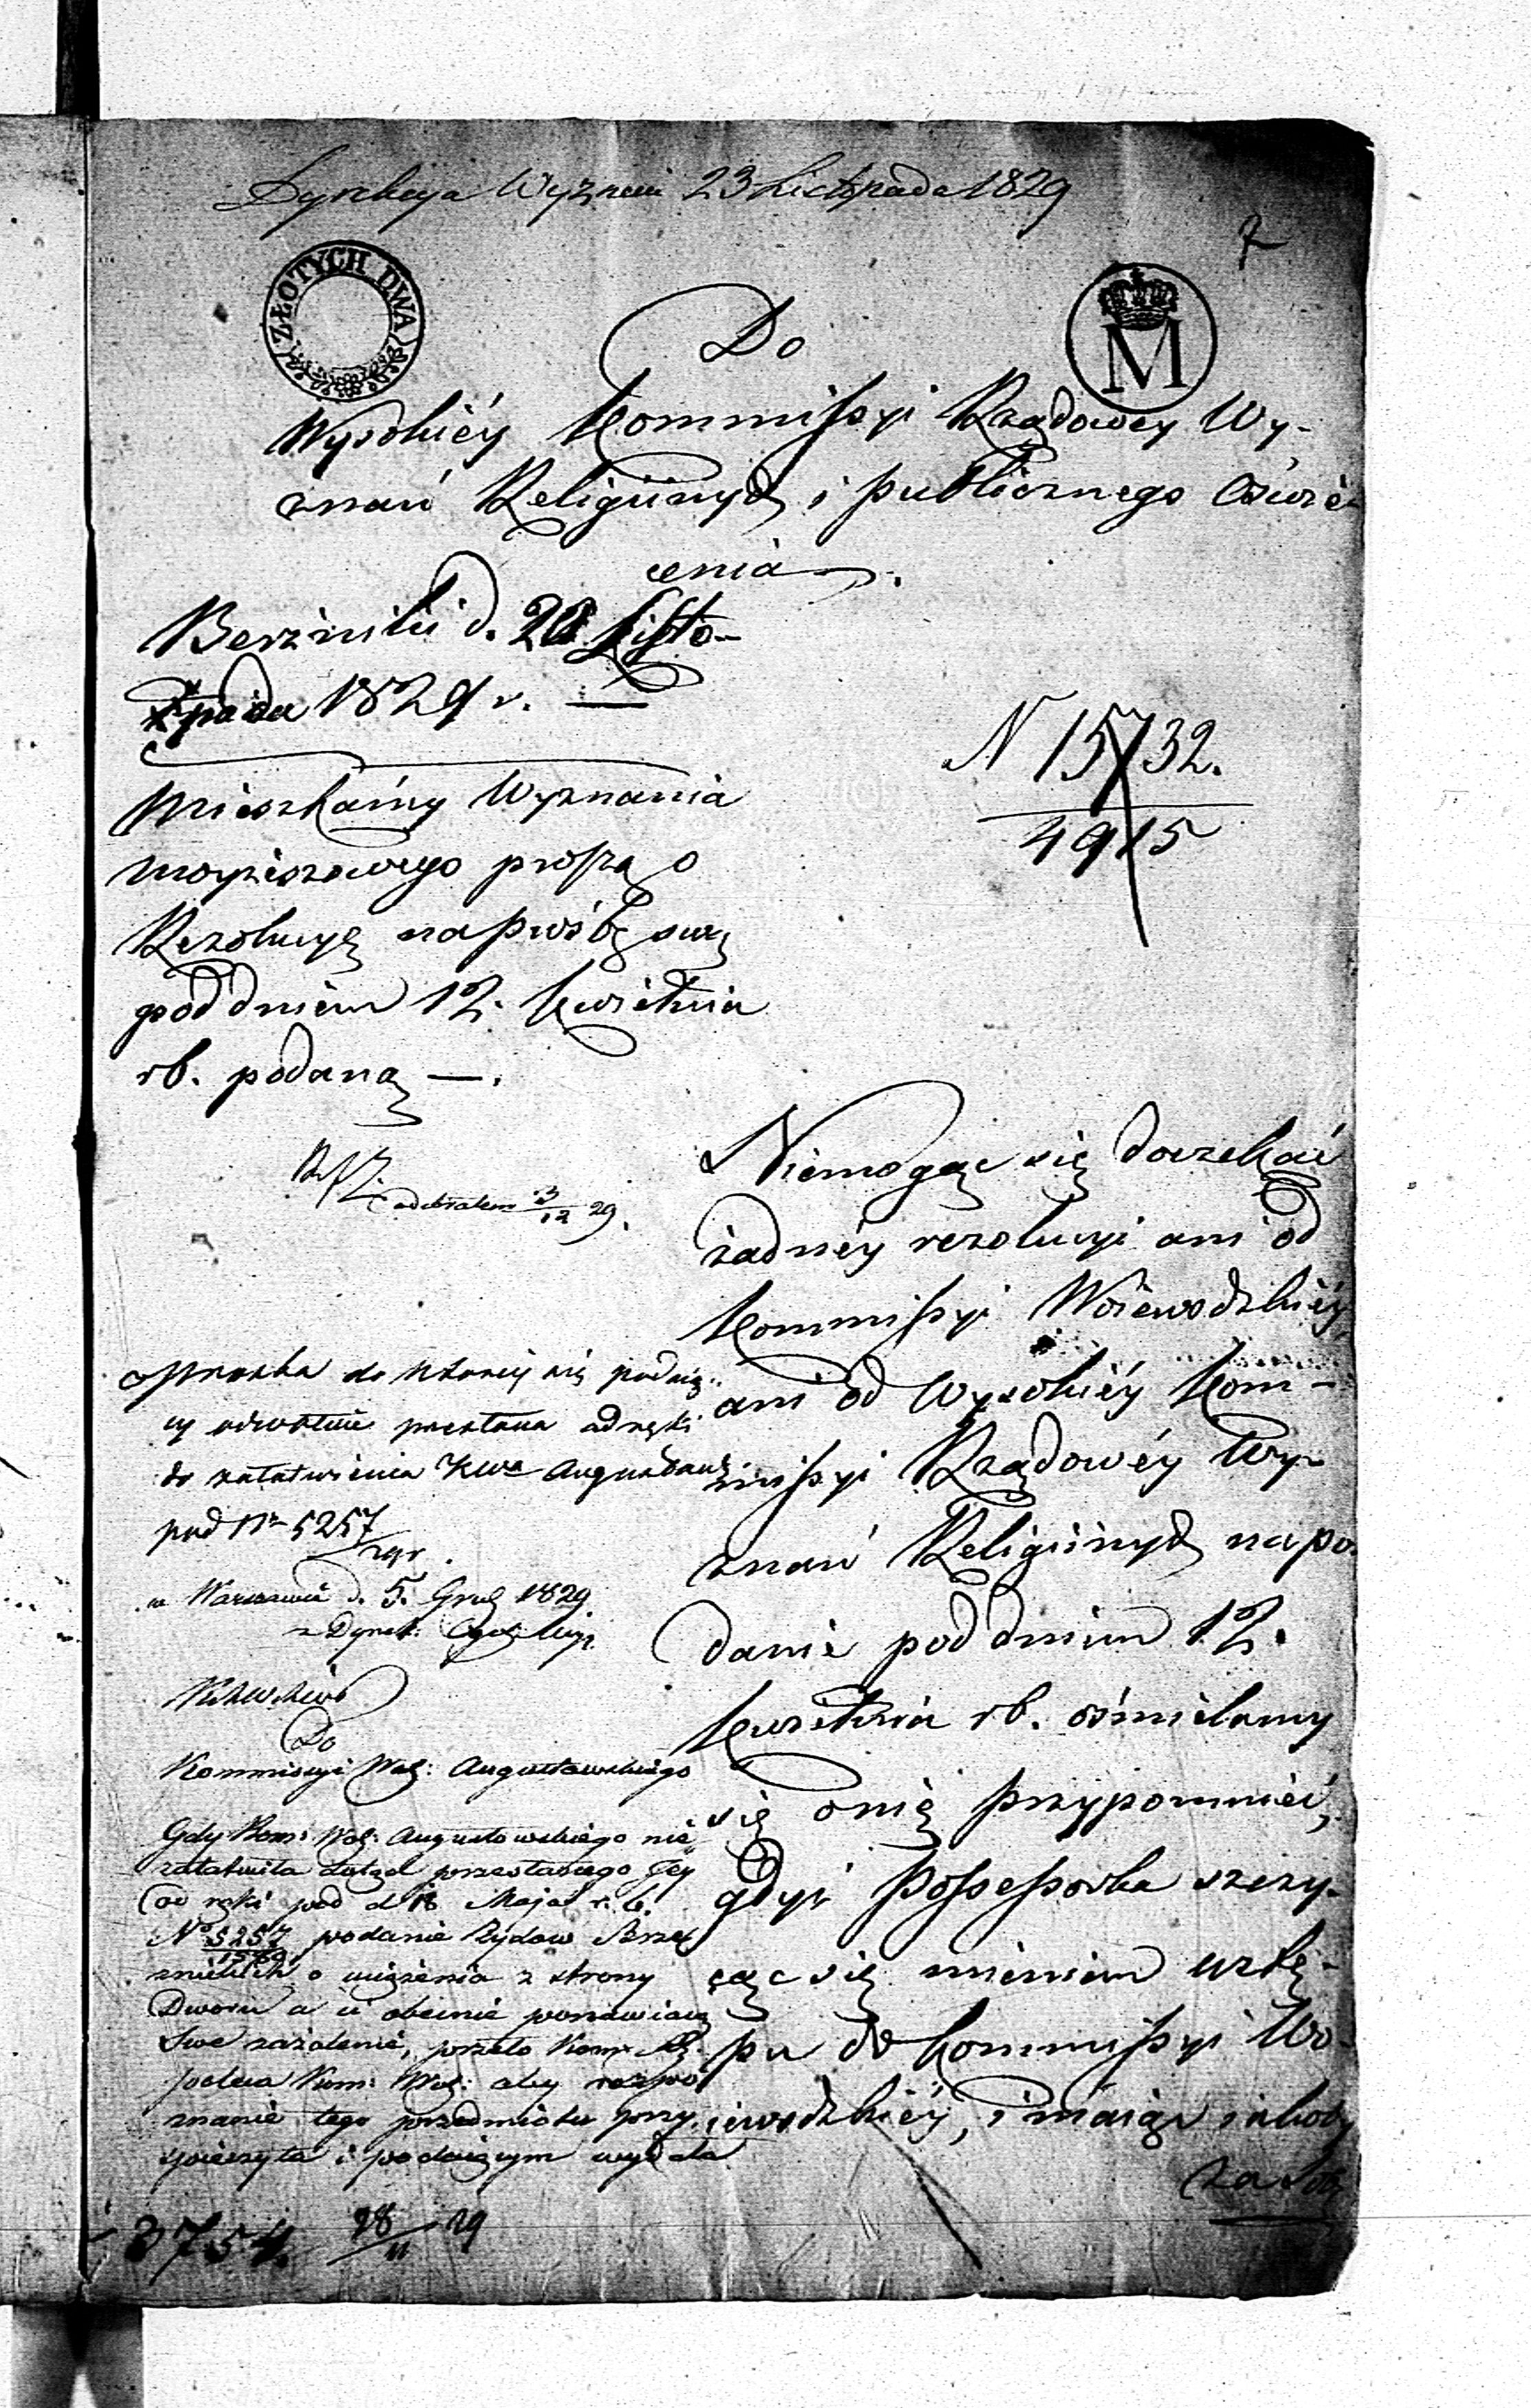 Dyrekcya Wyznań 23 Listopada 1829
7
ZŁOTYCH DWA
M
Do
Wysokiéy Kommissyi Rządowey Wy-
znań Religiinych i publicznego Oświe-
cenia.
Berźniki d. 20 Listo-
pada 1829 r.
N 15732.
4915
Mieszkańcy Wyznania
Moyżeszowego proszą o
Rezolucyę na proźbę swą
pod dniem 12. Kwietnia
rb. podaną —.
odebrałem 3/12 29.
Niemogąc się doczekać
żadnéy rezolucyi ani od
Kommissyi Woiewodzkiéy
ani od Wysokiéy Kom-
missyi Rządowéy Wy-
znań Religiinych na po-
danie pod dniem 12.
Kwietnia rb. ośmielamy
się onię przypomnieć,
gdyż Possessorka szczy-
cąc się imieniem urzę-
pu do Kommissyi Wo-
iewodzkiéy, i maiąc
za
Prosba do któréy się podaią-
cy odwołuie przesłana od ręki
do załatwienia KWa Augustows.
pod Nr 5257/29r.
w Warszawie d. 5. Grud 1829
z Dyrek:
Do
Kommissyi Woj: Augustowskiego
Gdy Kom: Woj: Augustowskiego nie
załatwiła dotąd przesłanego Jey
od ręki pod d 18 Maja r. b.
No 5257 podanie Żydow Berz-
nickich o uciążenia z strony
Dworu a ci obecnie ponawiaią
Swe zażalenie, przeto Kom: Rz.
poleca Kom: Woj: aby rozpo
znanie tego przedmiotu przy-
spieszyła i podaiącym wydała
3754. 28/11 29